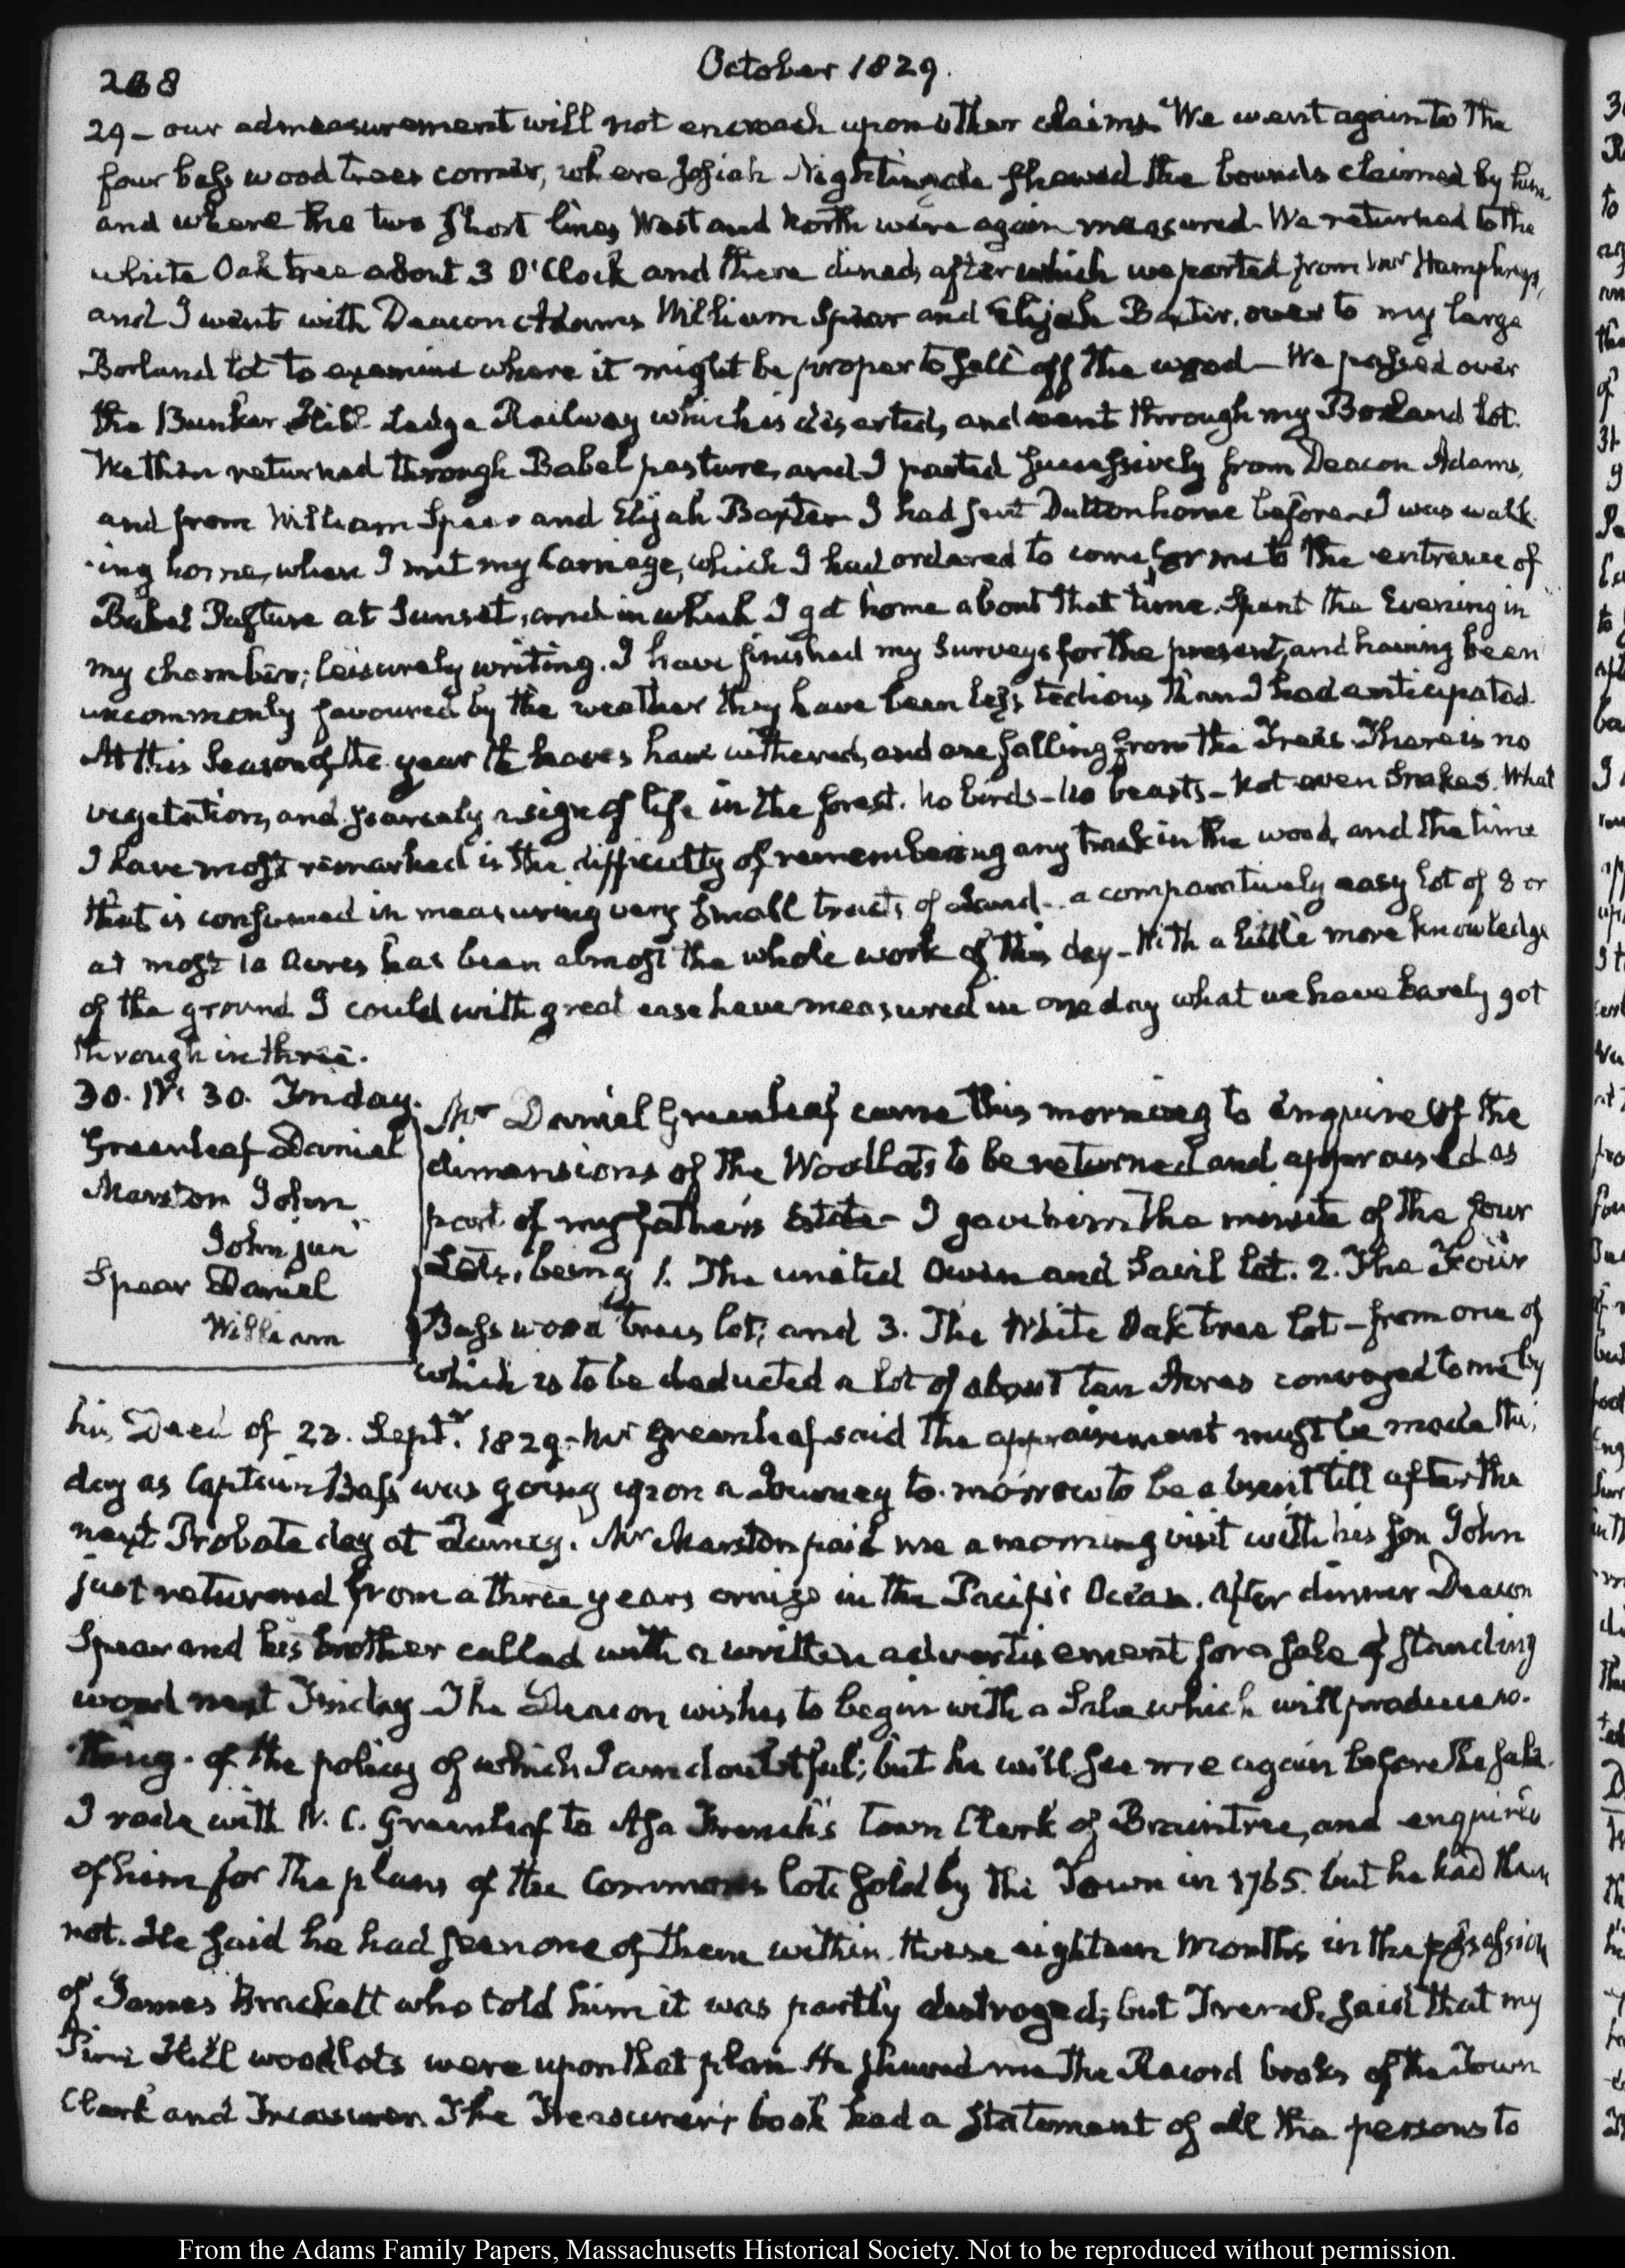 268
October 1829.
29 – our admeasurement will not encroach upon other claims. We went again to the
four bass wood trees corner, where Josiah Nightingale shewed the bounds claimed by him,
and where the two short lines West and North were again measured. We returned to the
white Oak tree about 3 O'Clock and there dined, after which we parted from Mr Humphreys,
and I went with Deacon Adams William Spear and Elijah Baxter, over to my large
Borland lot to examine where it might be proper to sell off the wood – We passed over
the Bunker Hill Ledge Railway which is deserted, and went through my Borland lot.
We then returned through Babel pasture, and I parted successively from Deacon Adams,
and from William Spear and Elijah Baxter I had sent Dutton home before and I was walk-
ing home, when I met my Carriage, which I had ordered to come for me to the entrance of
Babel Pasture at Sunset, and in which I got home about that time. Spent the Evening in
my chamber; leisurely writing. I have finished my Surveys for the present, and having been
uncommonly favoured by the weather they have been less tedious than I had anticipated.
At this Season of the year the leaves have withered, and are falling from the Trees. There is no
vegetation, and scarcely a sign of life in the forest. No birds – no beasts – Not even Snakes. What
I have most remarked is the difficulty of remembering any track in the wood, and the time
that is consumed in measuring very small tracts of Land – a comparatively easy lot of 8 or
at most 10 Acres has been almost the whole work of this day – With a little more knowledge
of the ground I could with great ease have measured in one day what we have barely got
through in three.
30. IV: 30. Friday.
Greenleaf Daniel
Marston John
John jun
Spear Daniel
William
Mr Daniel Greenleaf came this morning to enquire of the
dimensions of the Woodlots to be returned and appraised as
part of my father's Estate – I gave him the minute of the four
Lots, being 1. The united Owen and Savil lot. 2. The Four
Bass wood trees lot; and 3. The White Oak tree lot – from one of
which is to be deducted a lot of about ten Acres conveyed to me by
his Deed of 23. Septr. 1829. Mr Greenleaf said the appraisement must be made this
day as Captain Bass was going upon a Journey to-morrow to be absent till after the
next Probate day at Quincy. Mr Marston paid me a morning visit with his son John
just returned from a three years cruize in the Pacific Ocean. After dinner Deacon
Spear and his brother called with a written advertisement for a sale of standing
wood next Friday. The Deacon wishes to begin with a Sale which will produce no-
thing. of the policy of which I am doubtful; but he will see me again before the sale.
I rode with W. C. Greenleaf to Asa French's Town Clerk of Braintree, and enquired
of him for the plans of the Commons lots sold by the Town in 1765. but he had them
not. He said he had seen one of them within these eighteen Months in the possession
of James Brackett who told him it was partly destroyed; but French said that my
Pine Hill woodlots were upon that plan. He shewed me the Record books of the Town
Clerk and Treasurer. The Treasurer's book had a statement of all the persons to
From the Adams Family Papers, Massachusetts Historical Society. Not to be reproduced without permission.